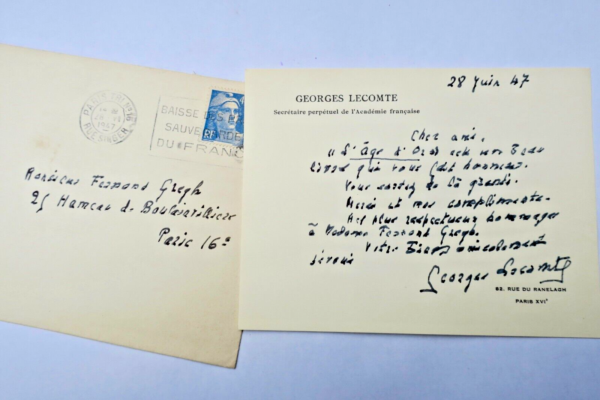 GEORGES LECOMTE
Secrétaire perpétuel de l'Académie française
28 Juin 47
Cher ami,
"L'Âge d'Or" est un beau
livre qui vous fait honneur.
Vous sortez de la
Merci et mes compliments.
Mes plus respectueux hommages
à Madame Fernand Gregh.
Votre bien amicalement
dévoué
Georges Lecomte
63, RUE DU RANELAGH
PARIS XVIe
Monsieur Fernand Gregh
25 Hameau de Boulainvilliers
Paris 16e
BAISSE DES
SAUVEGARDE
DU FRANC